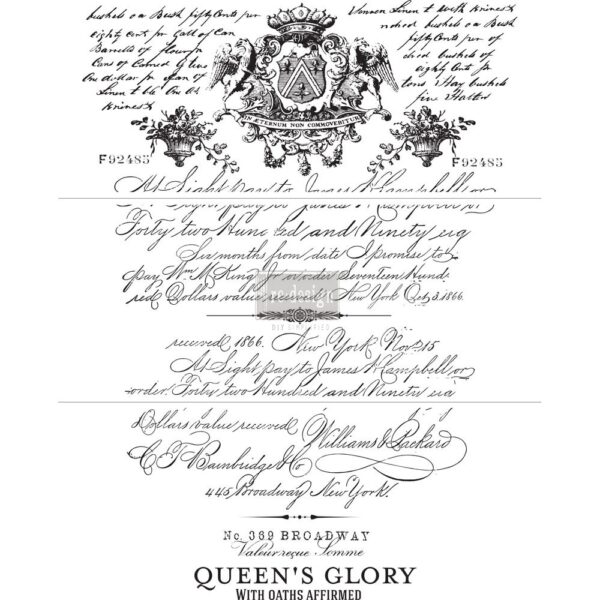 bushels o a Bush fifty Cents per
Eighty Cent for Gall of Can
Barrells of flour for
Cans of Colored G
On dollar for
Linen t
Knines x
Vennen Linen t with Knines x
bushels of
fifty Cents per
died bushels of
eighty Cents for
tons, Hay bushels
fine Halters
IN ÆTERNUM NON COMMOVEBITUR
F92485
F92485
At Sight pay to James H Campbell or
Forty two Hund red and Ninety eig
Six months from date I promise to
pay Wm McKing Jr or order Seventeen Hund
red Dollars value received New York Oct 3. 1866.
re·design
DIY SIMPLIFIED
received 1866. New York Nov. 15
At Sight pay to James H Campbell or
order Forty two Hundred and Ninety eig
Dollars value received
Williams & Packard
C. T. Bainbridge & Co
445 Broadway New York.
No. 369 BROADWAY
Valeur reçue Somme
QUEEN'S GLORY
WITH OATHS AFFIRMED